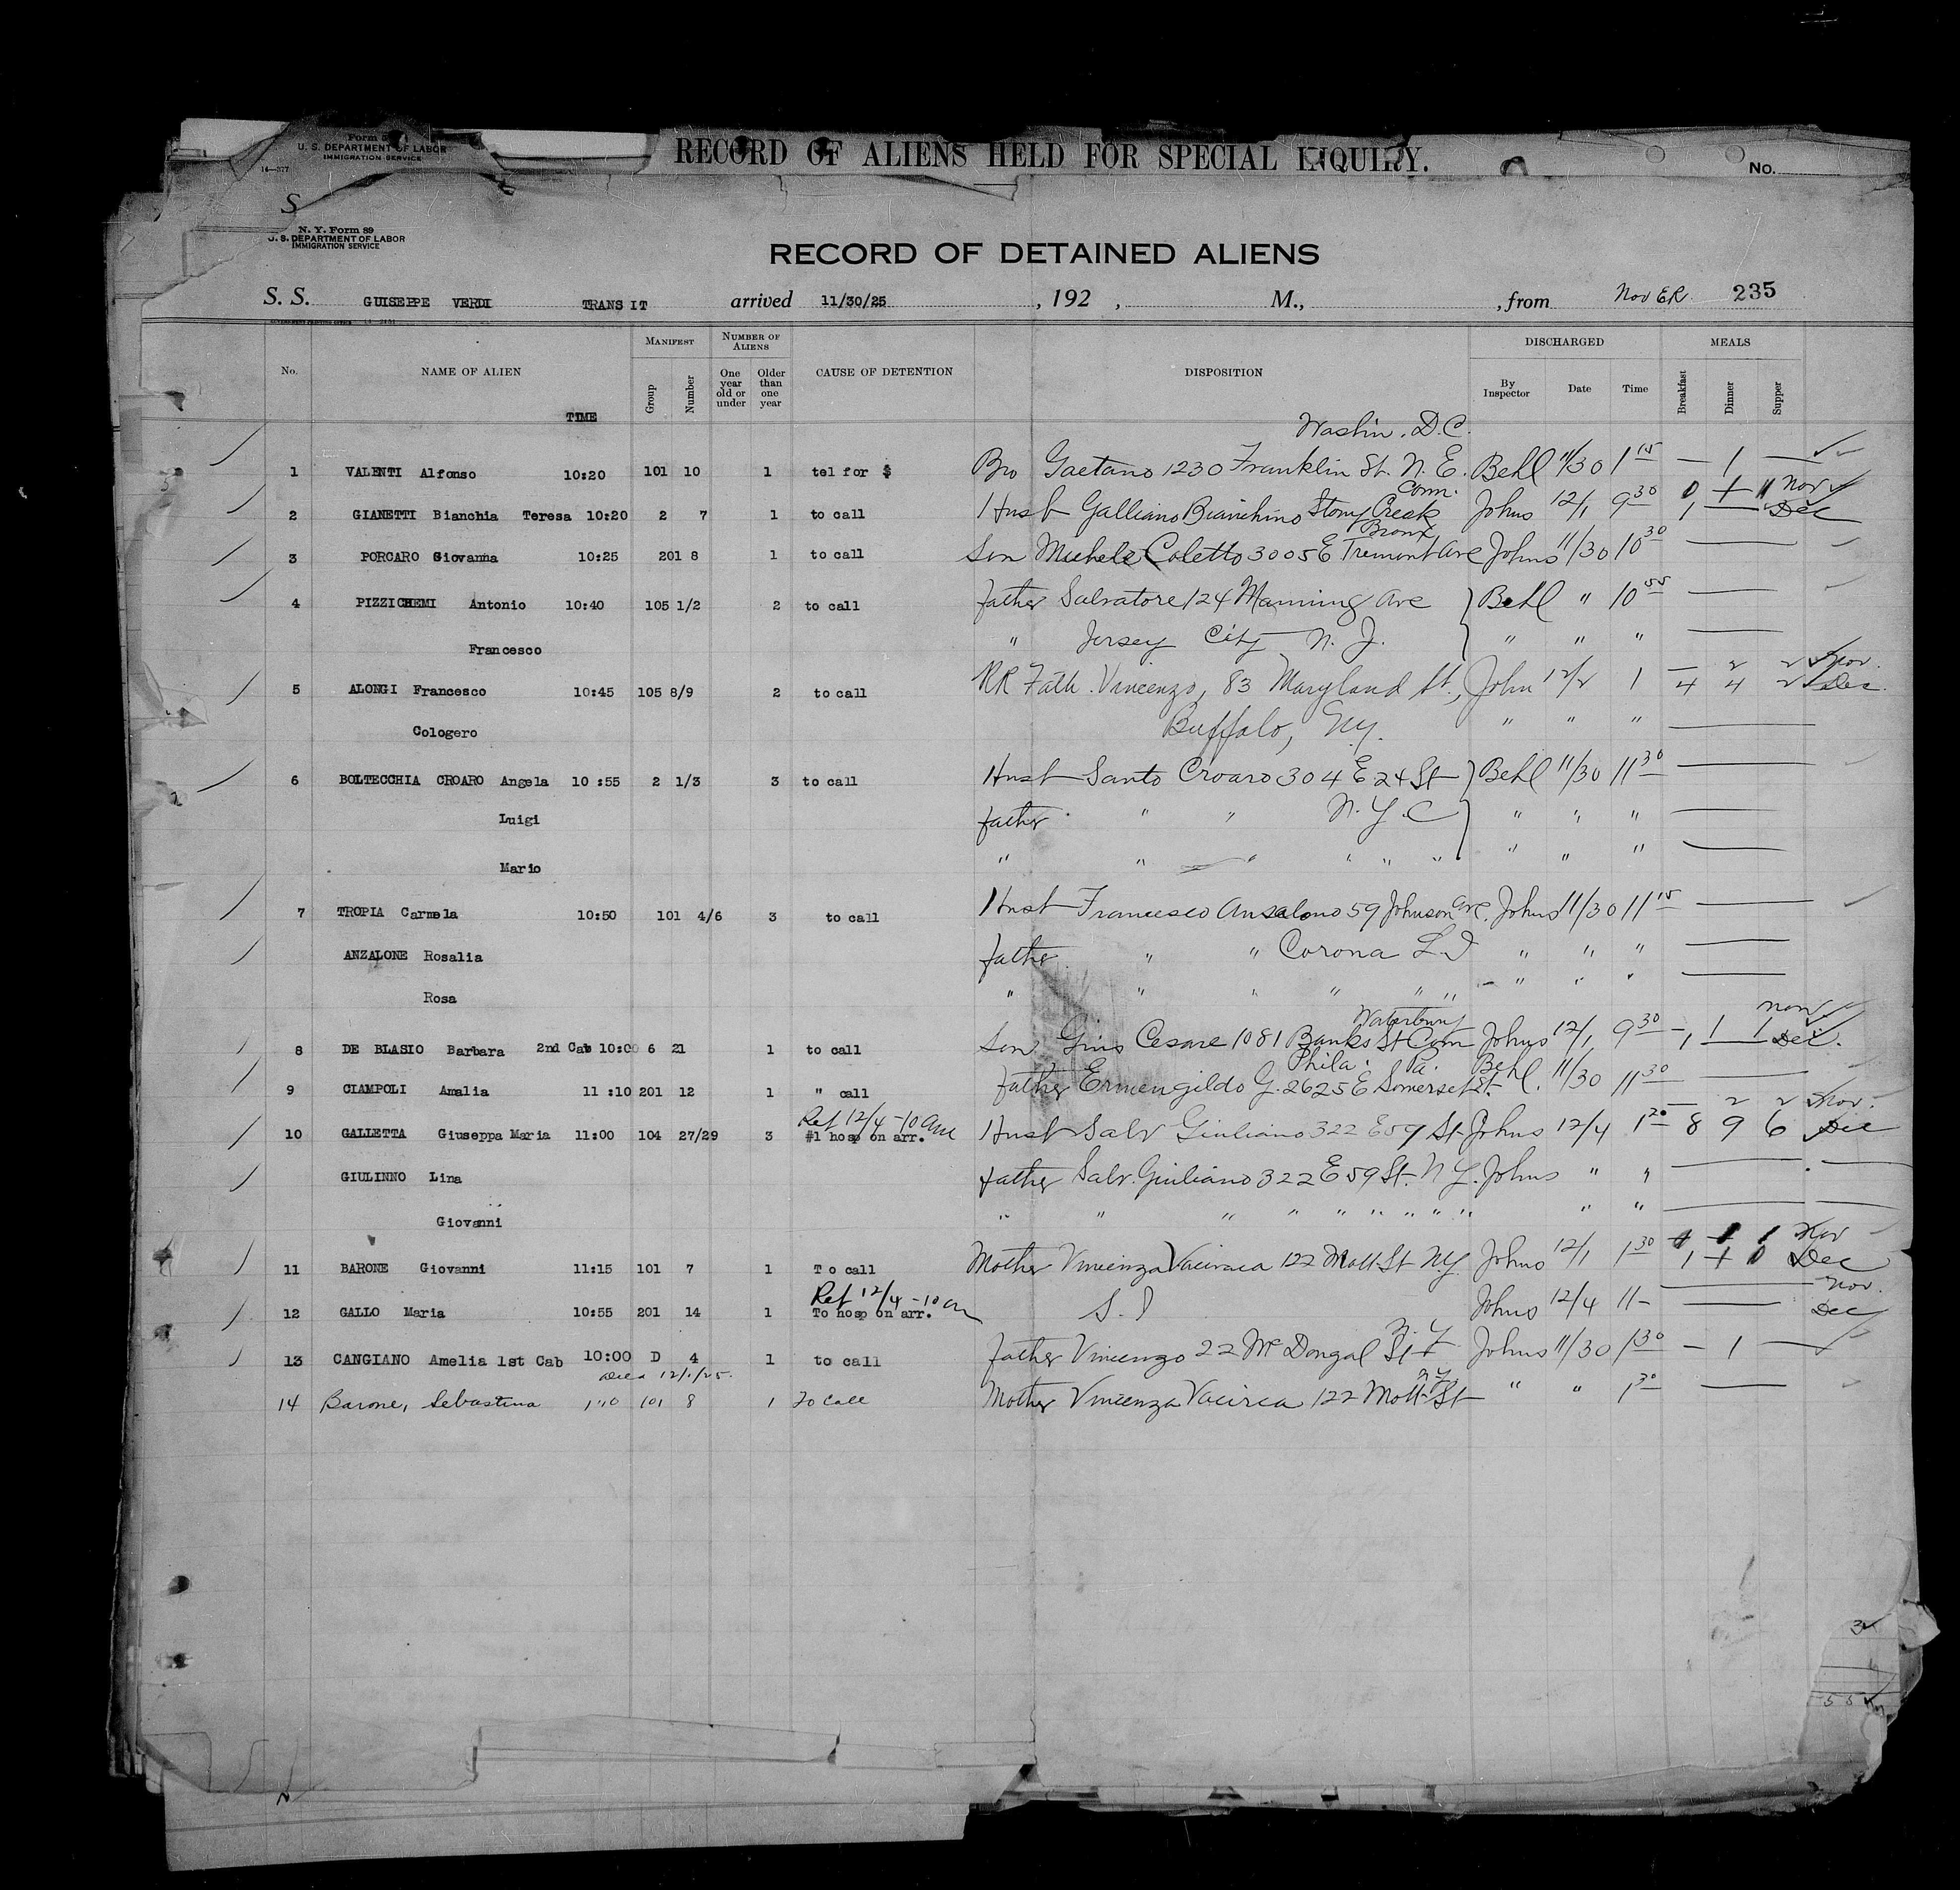 Form 5
U. S. DEPARTMENT OF LABOR
IMMIGRATION SERVICE
14—377
RECORD OF ALIENS HELD FOR SPECIAL INQUIRY.
No.
S
N. Y. Form 89
U. S. DEPARTMENT OF LABOR
IMMIGRATION SERVICE
RECORD OF DETAINED ALIENS
S. S. GUISEPPE VERDI TRANSIT arrived 11/30/25 , 192 , M., , from Nov ER. 235
No. NAME OF ALIEN TIME MANIFEST Group Number NUMBER OF ALIENS One year old or under Older than one year CAUSE OF DETENTION DISPOSITION DISCHARGED By Inspector Date Time MEALS Breakfast Dinner Supper
Washin. D.C.
1 VALENTI Alfonso 10:20 101 10 1 tel for $ Bro Gaetano 1230 Franklin St. N. E. Behl 11/30 1 15 — 1 —
Conn. Nov
2 GIANETTI Bianchia Teresa 10:20 2 7 1 to call Husb Galliano Bianchino Stony Creek Johns 12/1 9 30 Dec
Bronx
3 PORCARO Giovanna 10:25 201 8 1 to call Son Michele Coletto 3005 E Tremont Ave Johns 11/30 10 30
4 PIZZICHEMI Antonio 10:40 105 1/2 2 to call father Salvatore 124 Manning Ave Behl " 10 55
Francesco " Jersey City N. J. " " "
— 2 2 Nov.
5 ALONGI Francesco 10:45 105 8/9 2 to call RR Fath. Vincenzo, 83 Maryland St., John 12/2 1 4 4 2 Dec.
Cologero Buffalo, N.Y. " " "
6 BOLTECCHIA CROARO Angela 10 :55 2 1/3 3 to call Husb Santo Croaro 304 E. 24 St Behl 11/30 11 30
Luigi father " " N. Y. C " " "
Mario " " " " " " " " "
7 TROPIA Carmela 10:50 101 4/6 3 to call Husb Francesco Ansalono 59 Johnson Ave. Johns 11/30 11 15
ANZALONE Rosalia father " " Corona L. I " " "
Rosa " " " " " " " " "
Waterbury Nov.
8 DE BLASIO Barbara 2nd Cab 10:00 6 21 1 to call Son Gins Cesare 1081 Banks St Conn Johns 12/1 9 30 Dec.
Phila. Pa.
9 CIAMPOLI Amalia 11 :10 201 12 1 " call father Ermengildo G. 2625 E Somerset St. Behl. 11/30 11 30
Ref 12/4 - 10 am — 2 2 Nov.
10 GALLETTA Giuseppa Maria 11:00 104 27/29 3 #1 hosp on arr. Husb Salv Giuliano 322 E 59 St Johns 12/4 1 20 8 9 6 Dec
GIULINNO Lina father Salv. Giuliano 322 E 59 St. N Y. Johns " "
Giovanni " " " " " " " " " " "
Nov
11 BARONE Giovanni 11:15 101 7 1 To call Mother Vincenza Vacirca 122 Mott St N.Y. Johns 12/1 1 30 Dec
Ref 12/4 - 10 am Nov
12 GALLO Maria 10:55 201 14 1 To hosp on arr. S. I Johns 12/4 11- Dec
N. Y
13 CANGIANO Amelia 1st Cab 10:00 D 4 1 to call father Vincenzo 22 Mc Dongal St Johns 11/30 1 30 — 1 —
12/1/25. N.Y.
14 Barone, Sebastina 101 8 1 To Call Mother Vincenza Vacirca 122 Mott St " " 1 30
3